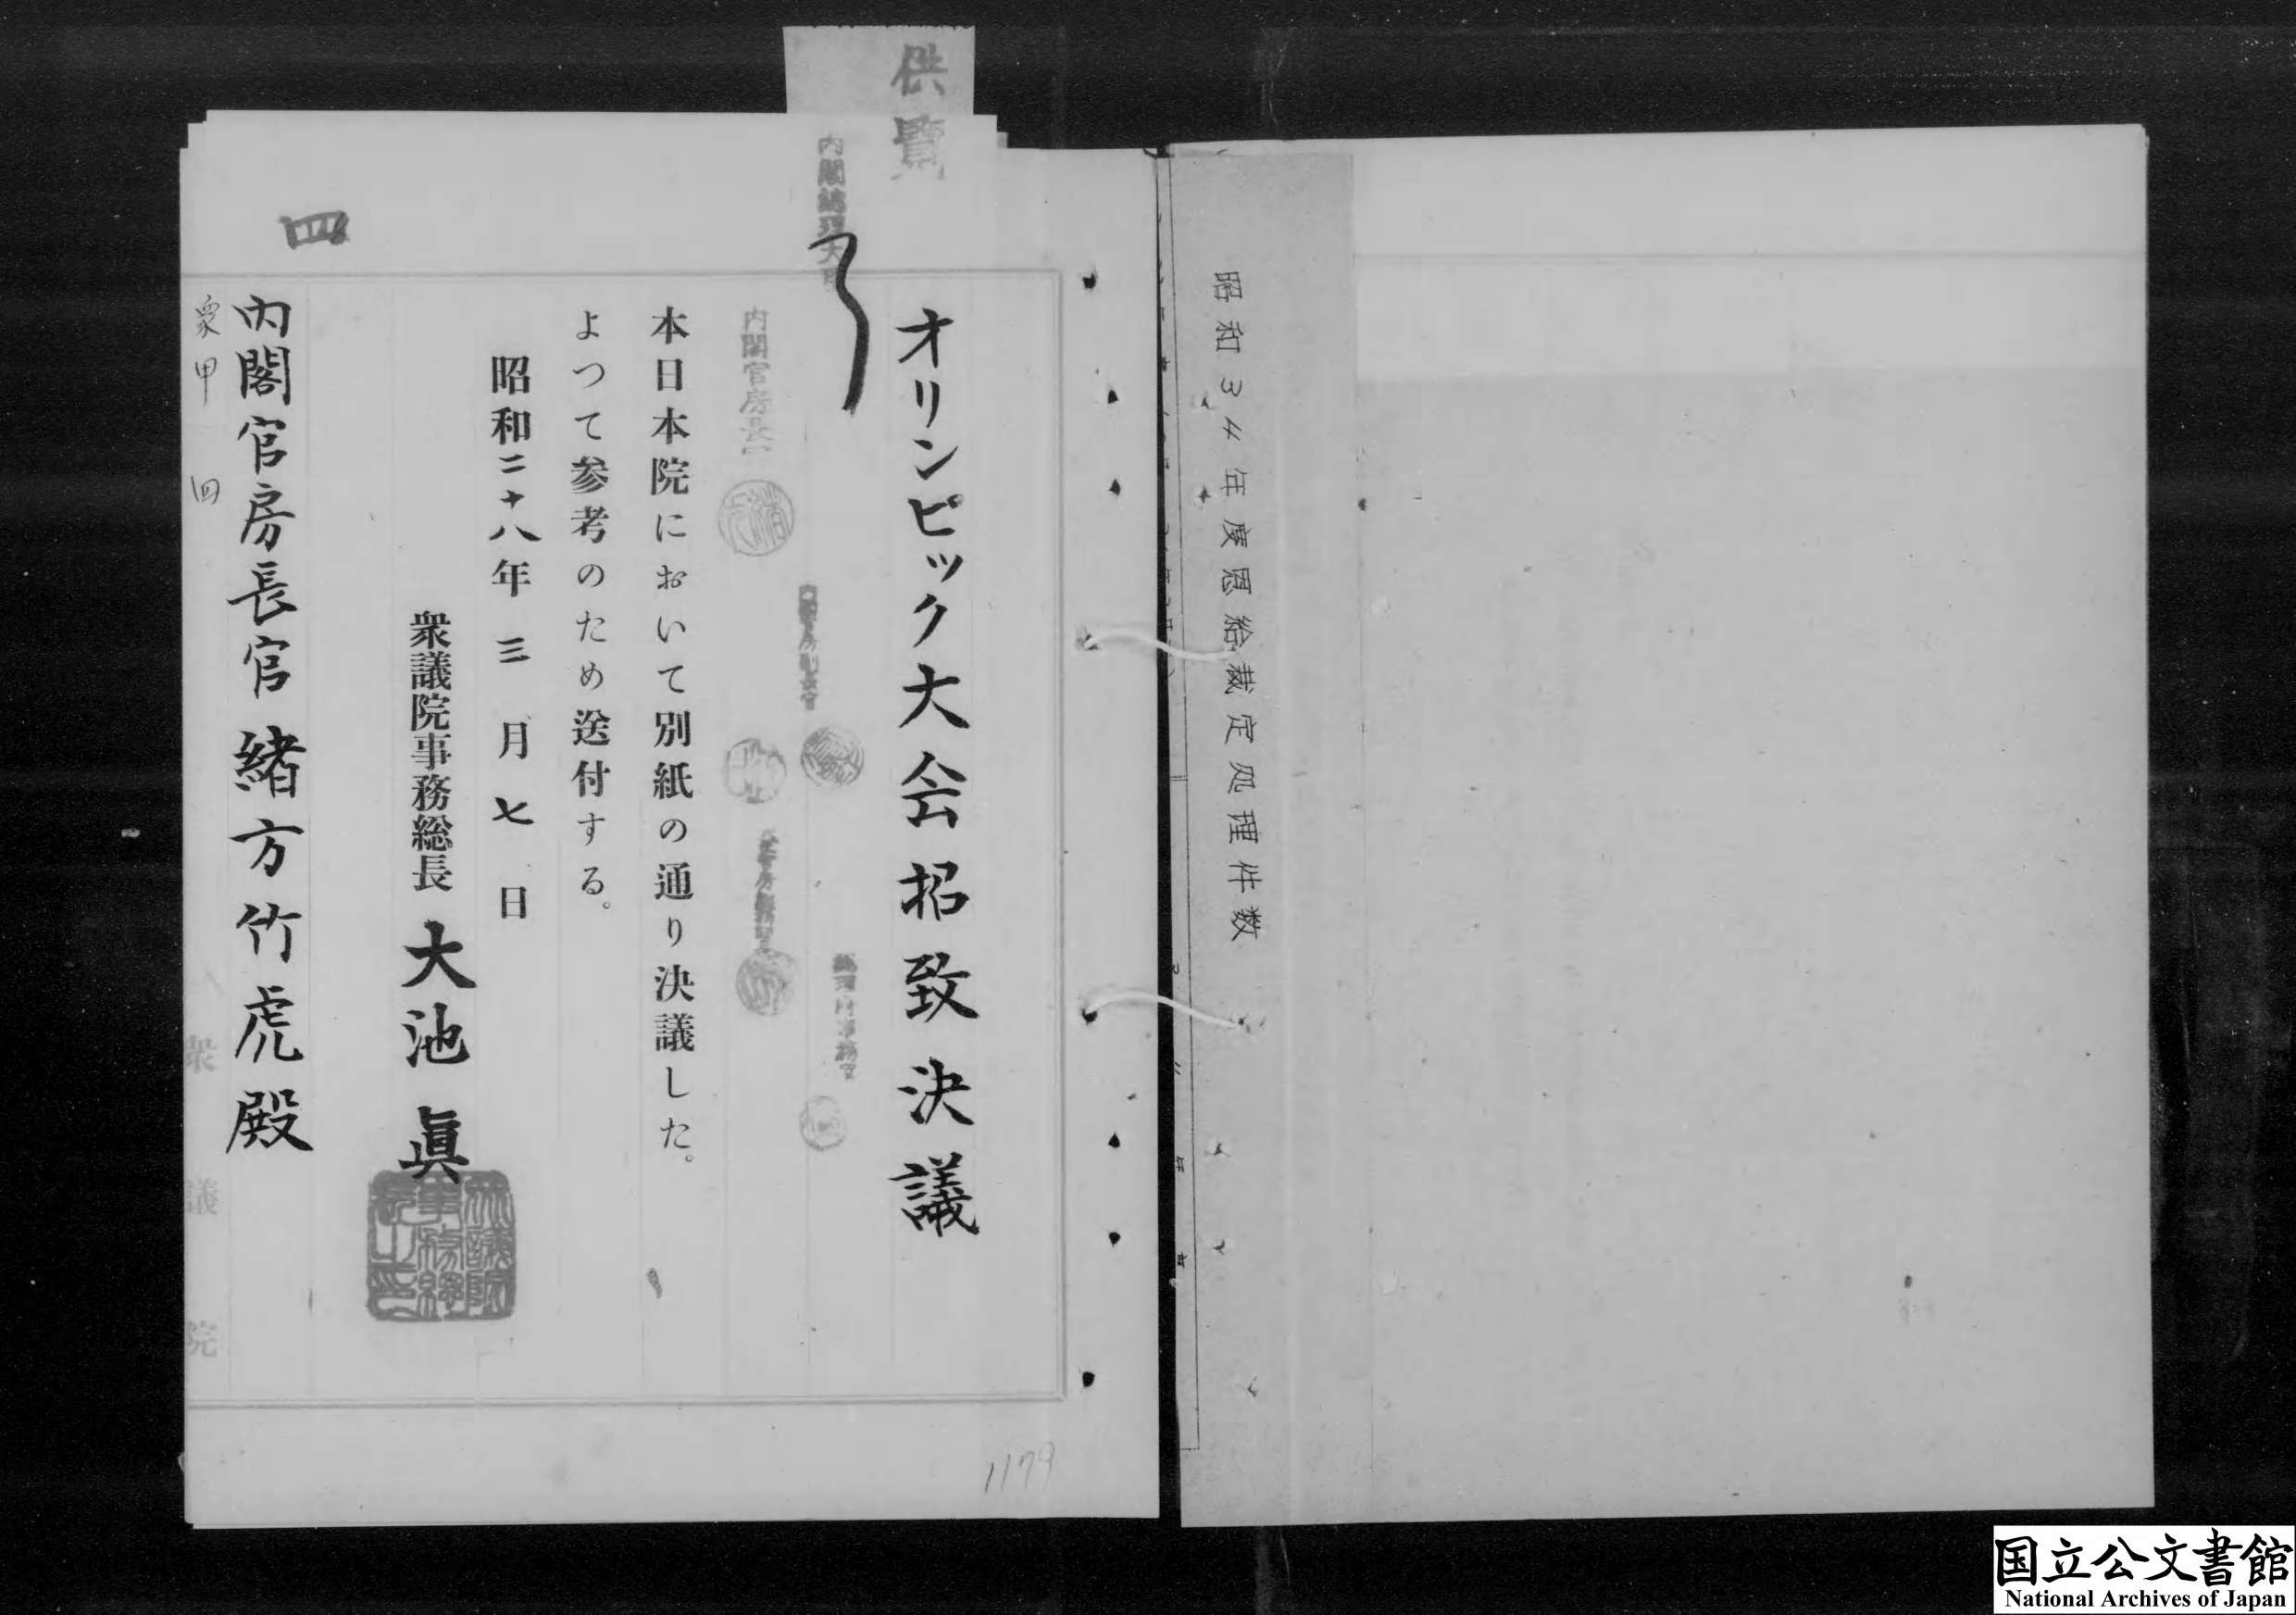 昭和34年度恩給裁定処理件数
供覽
オリンピック大会招致決議
内閣総理大臣
内閣官房長官
内閣官房副長官
本日本院において別紙の通り決議した。
よつて参考のため送付する。
昭和二十八年三月七日
衆議院事務総長 大池眞
衆議院事務総長之印
内閣官房長官 緒方竹虎殿
衆甲 四
四
衆議院
1179
国立公文書館
National Archives of Japan